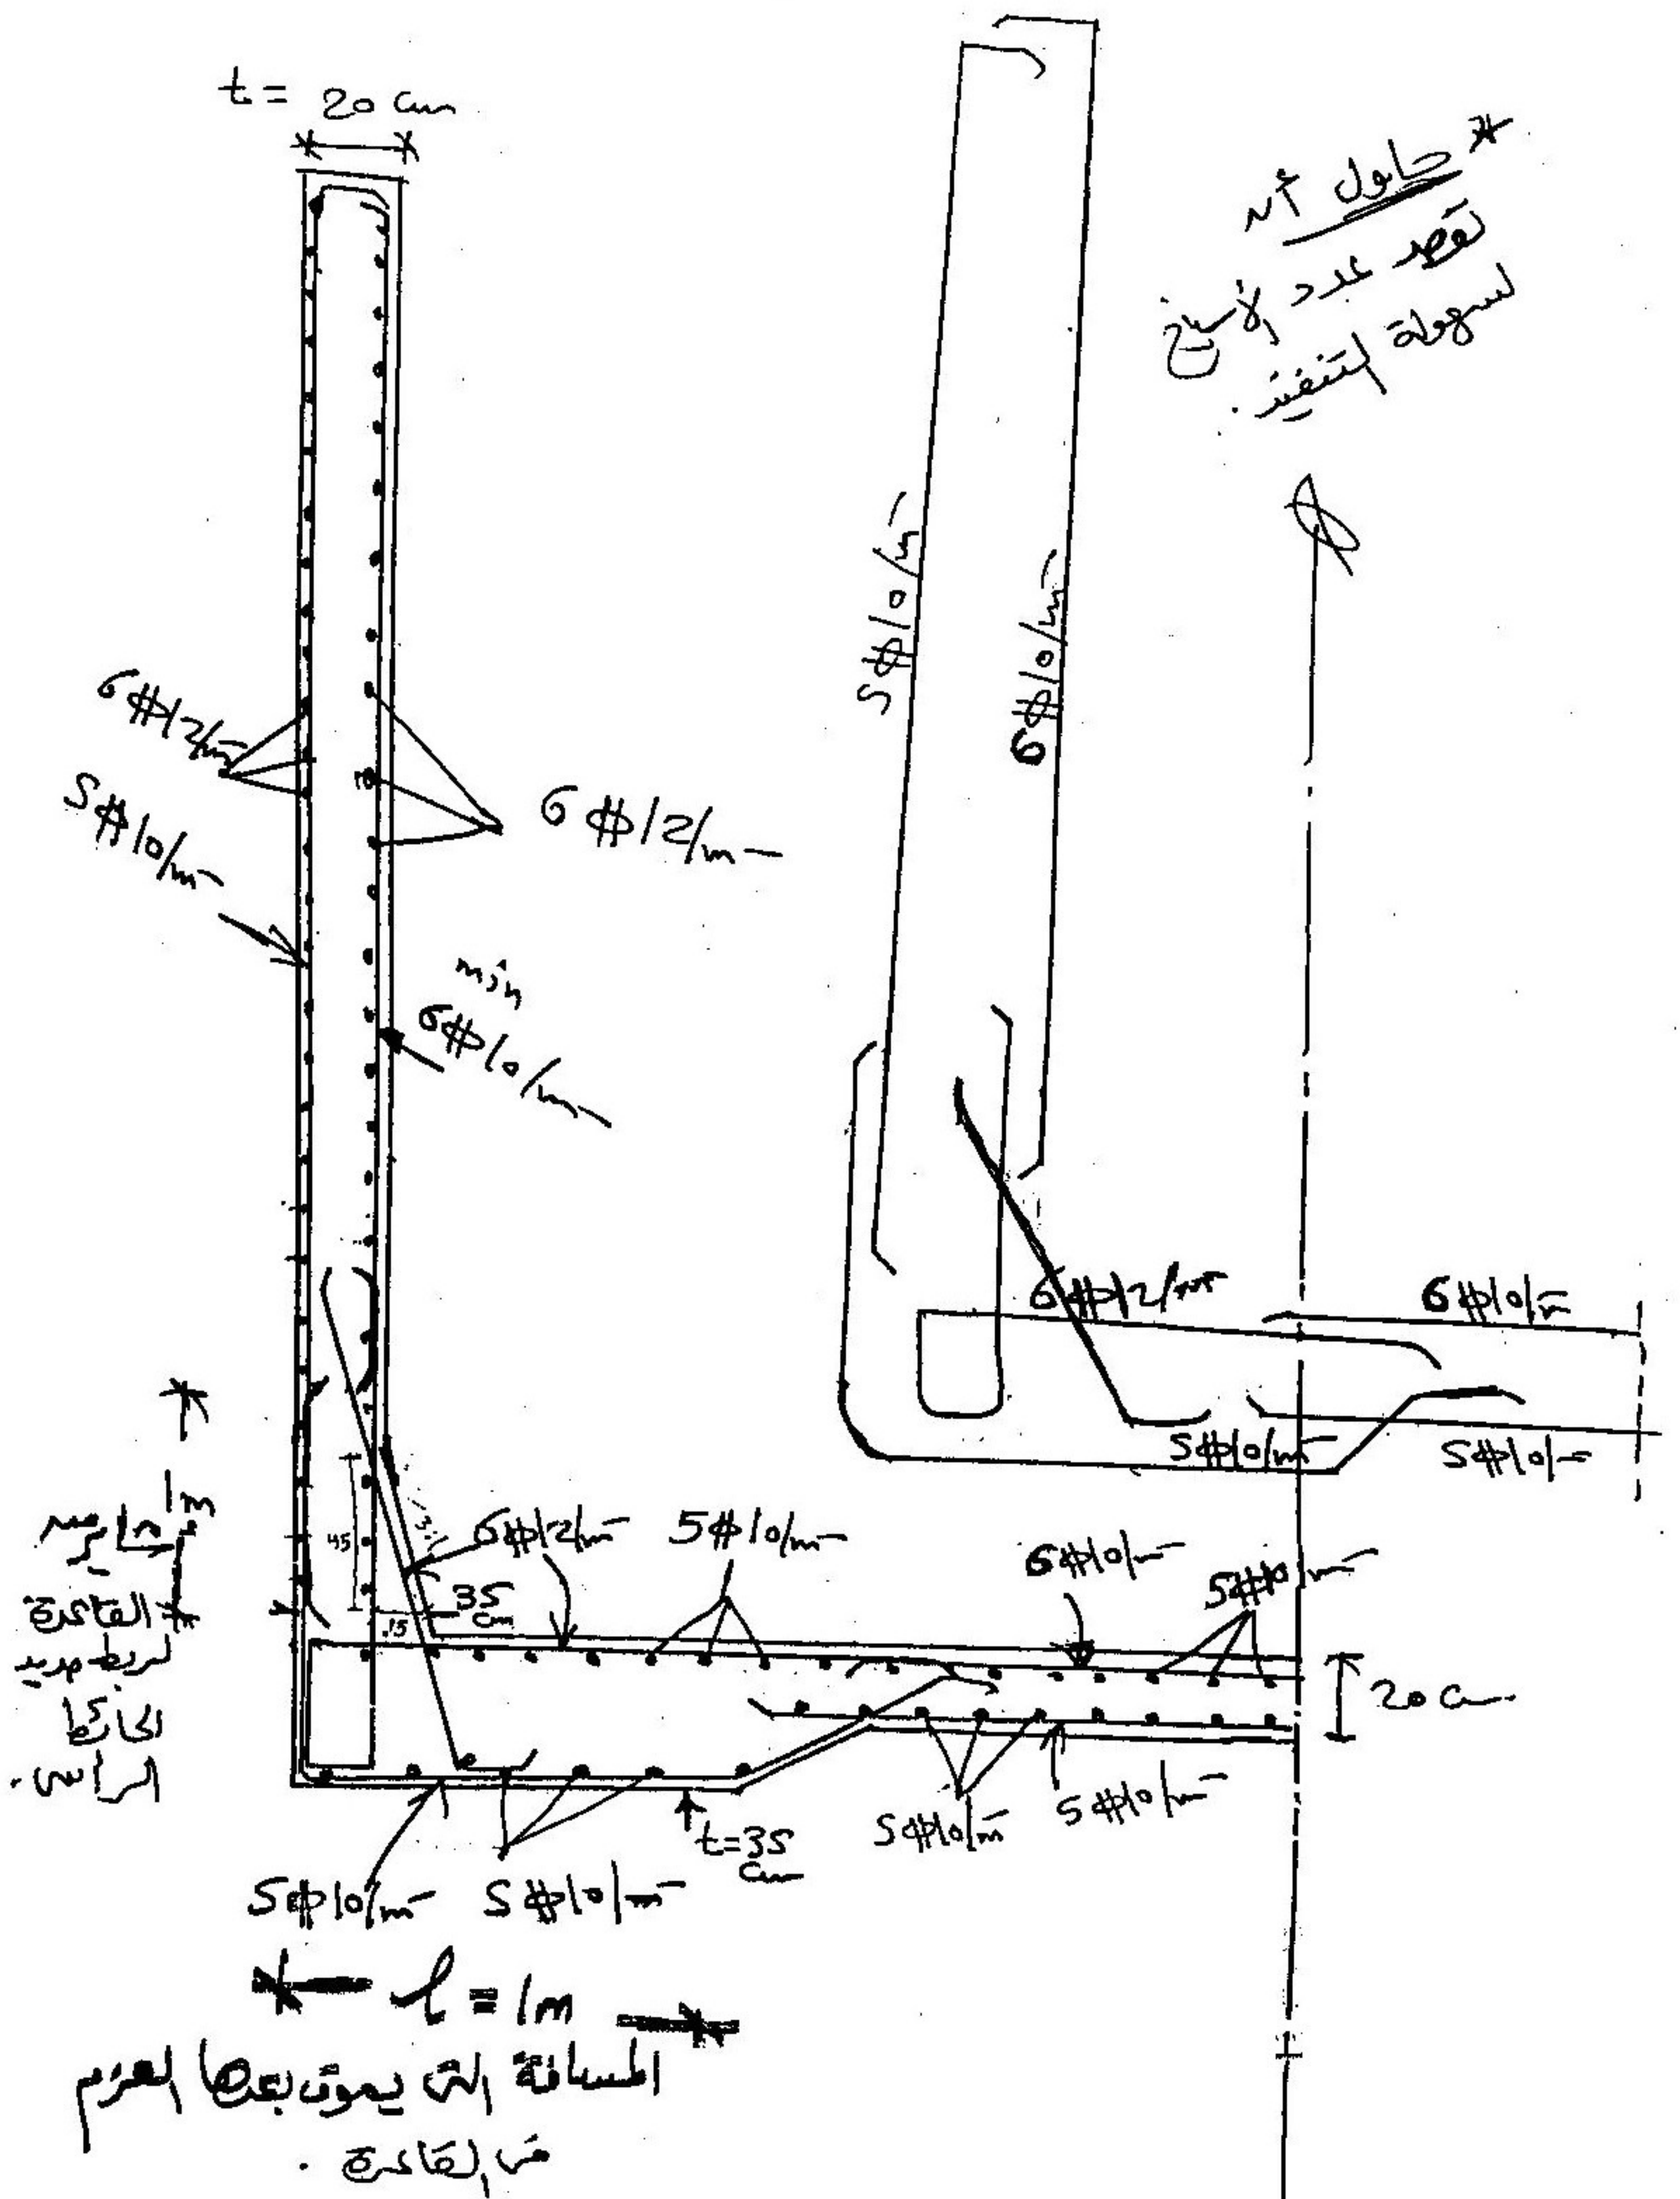 t = 20 cm
* حاول أن
تقصر عدد الأسياخ
لسهولة التنفيذ.
5#10/m
6#10/m
6#12/m
5#10/m
6#12/m
min
6#10/m
6#12/m
6#10/m
5#10/m
5#10/m
1m
القاعدة
لربط حديد
الحائط
الرأسى.
45
.15
35
cm
6#12/m
5#10/m
6#10/m
5#10/m
20 cm
t=35
cm
5#10/m
5#10/m
5#10/m
5#10/m
l = 1m
المسافة التى يموت بعدها العزم
فى القاعدة.